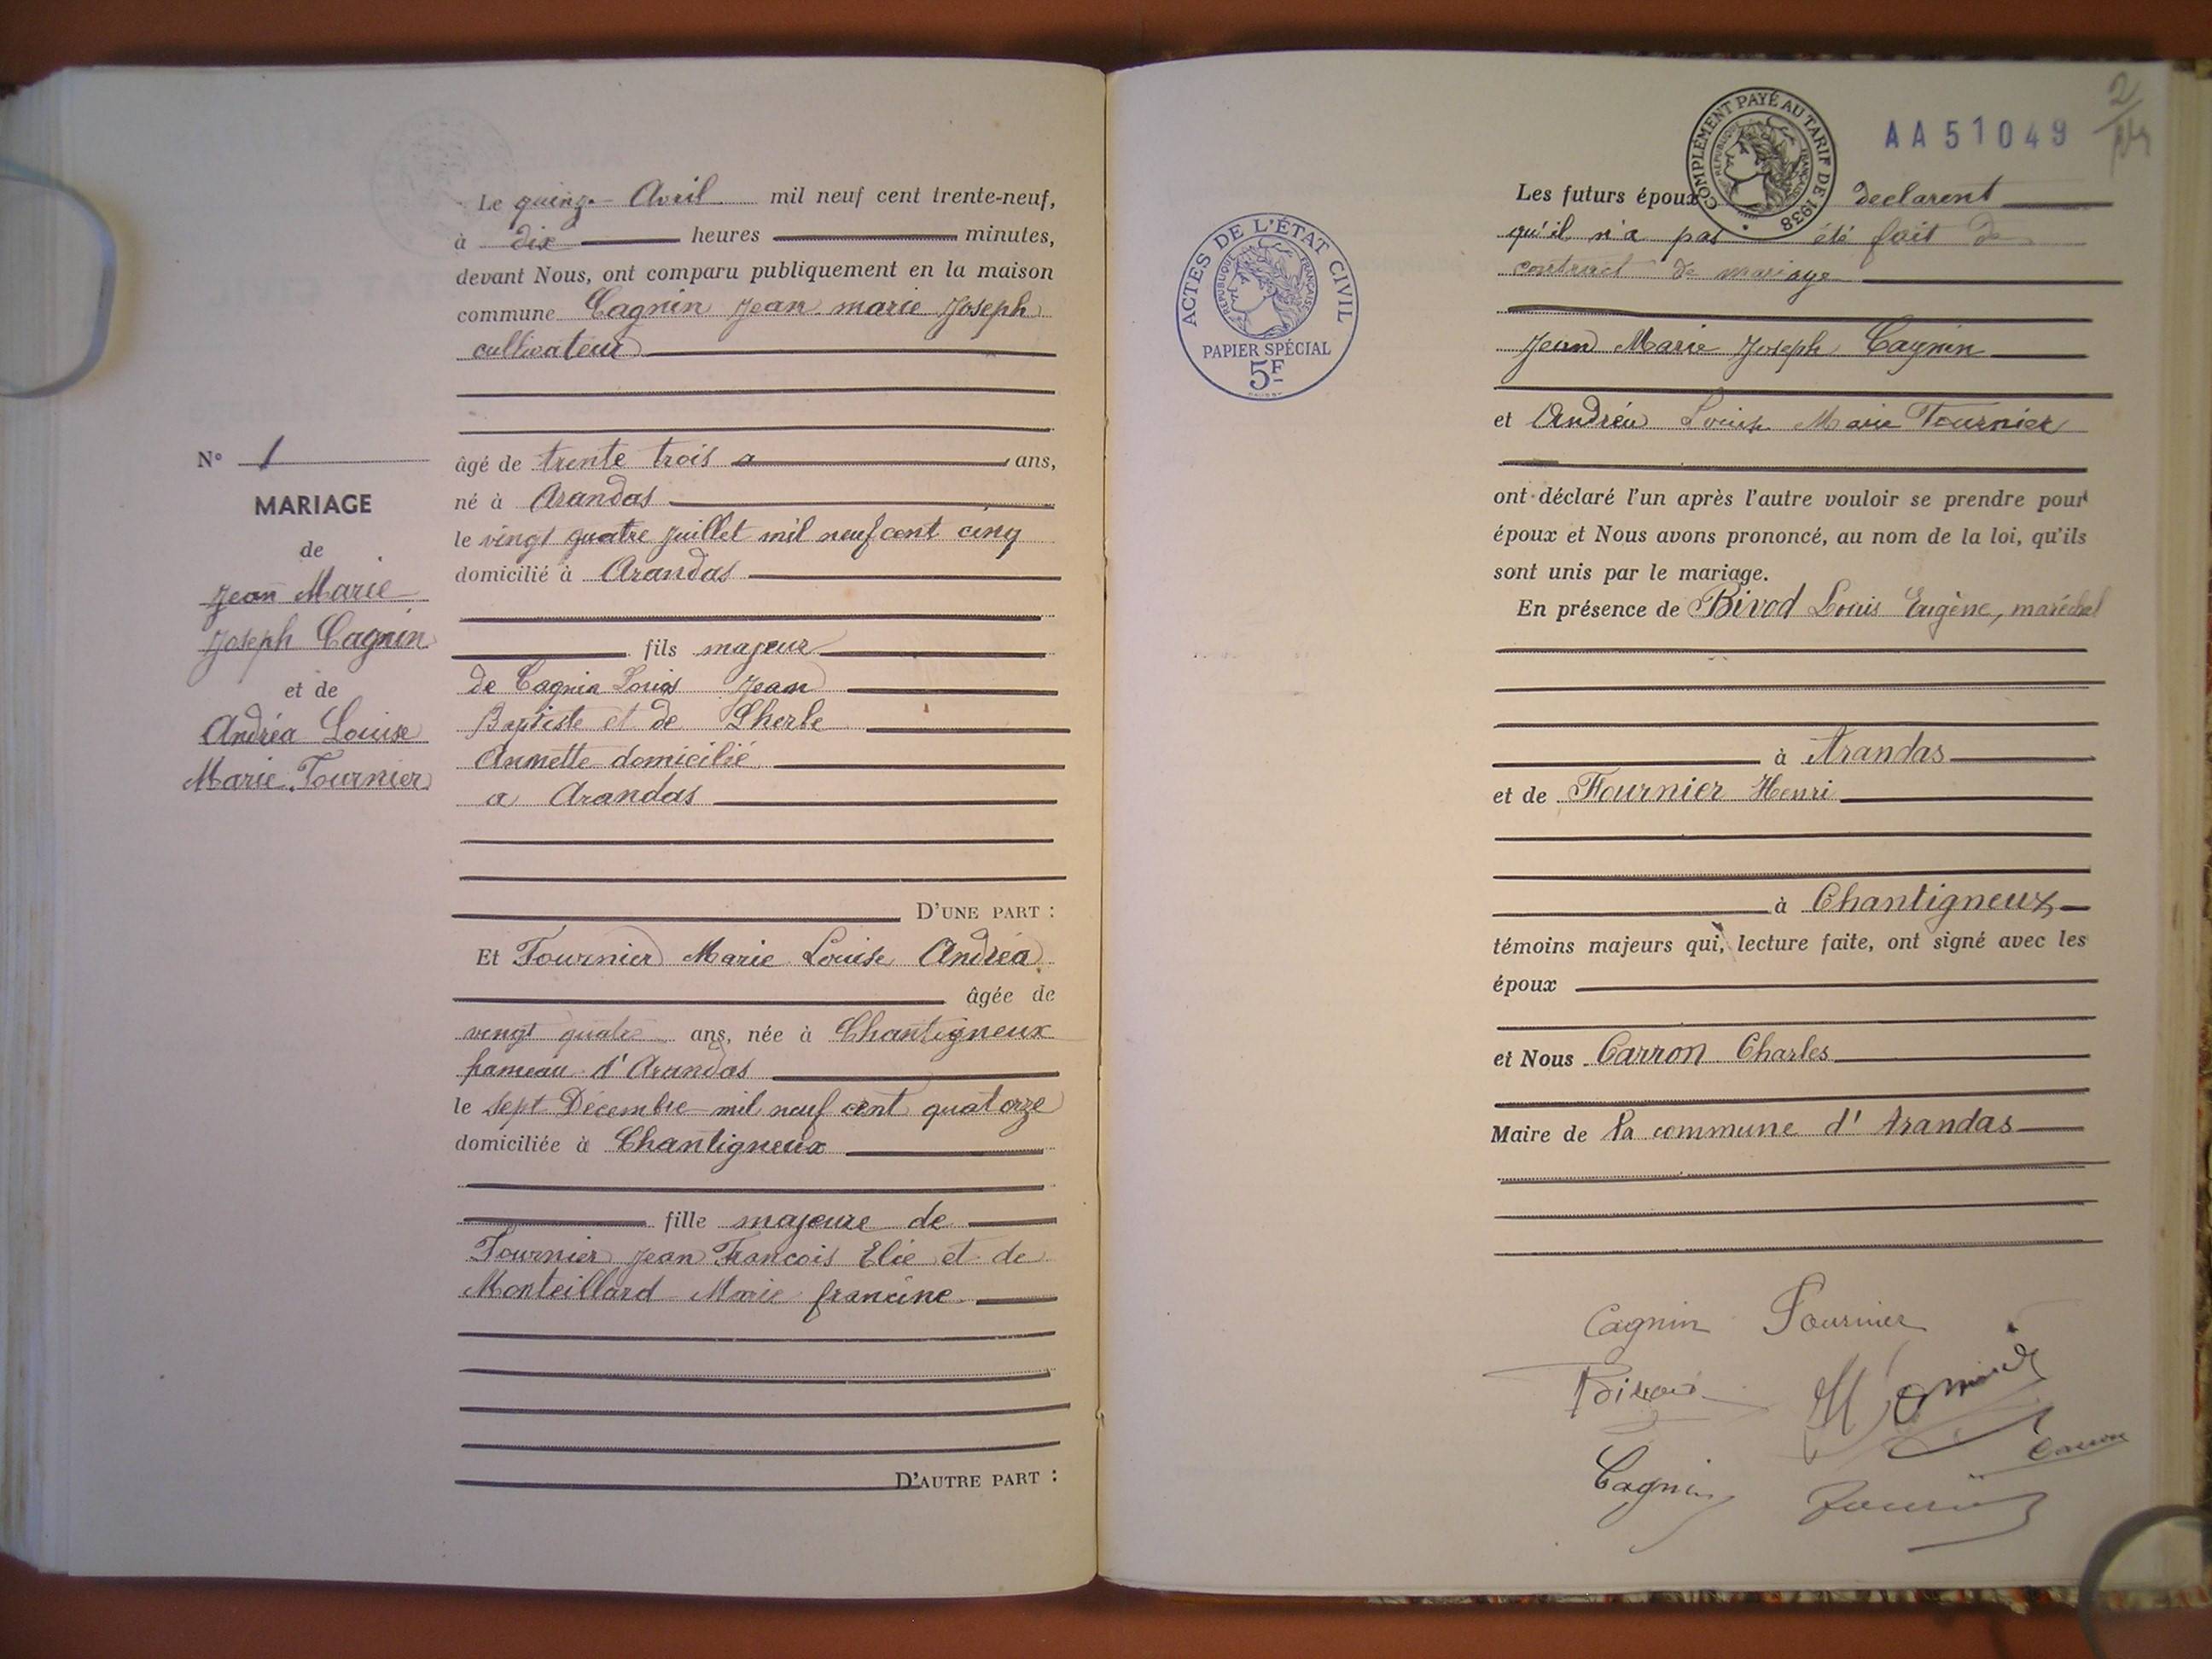 Le quinze Avril mil neuf cent trente-neuf,
à dix heures minutes,
devant Nous, ont comparu publiquement en la maison
commune Cagnin Jean marie Joseph
cultivateur
âgé de trente trois a ans,
né à Arandas
le vingt quatre juillet mil neuf cent cinq
domicilié à Arandas
fils majeur
de Cagnin Louis Jean
Baptiste et de Lherbe
Annette domicilié
a Arandas
D'UNE PART :
Et Tournier Marie Louise Andréa
âgée de
vingt quatre ans, née à Chantigneux
hameau d'Arandas
le sept Décembre mil neuf cent quatorze
domiciliée à Chantigneux
fille majeure de
Tournier Jean François Elie et de
Monteillard Marie francine
D'AUTRE PART :
N° 1
MARIAGE
de
Jean Marie
Joseph Cagnin
et de
Andréa Louise
Marie Tournier
ACTES DE L'ÉTAT CIVIL
RÉPUBLIQUE FRANÇAISE
PAPIER SPÉCIAL
5F
COMPLÉMENT PAYÉ AU TARIF DE 1938
RÉPUBLIQUE FRANÇAISE
AA51049
2
Les futurs époux declarent
qu'il n'a pas été fait de
contract de mariage
Jean Marie Joseph Cagnin
et Andréa Louise Marie Tournier
ont déclaré l'un après l'autre vouloir se prendre pour
époux et Nous avons prononcé, au nom de la loi, qu'ils
sont unis par le mariage.
En présence de Bivod Louis Eugène, maréchal
à Arandas
et de Fournier Henri
à Chantigneux
témoins majeurs qui, lecture faite, ont signé avec les
époux
et Nous Carron Charles
Maire de la commune d'Arandas
Cagnin Tournier
Cagnin
Carron